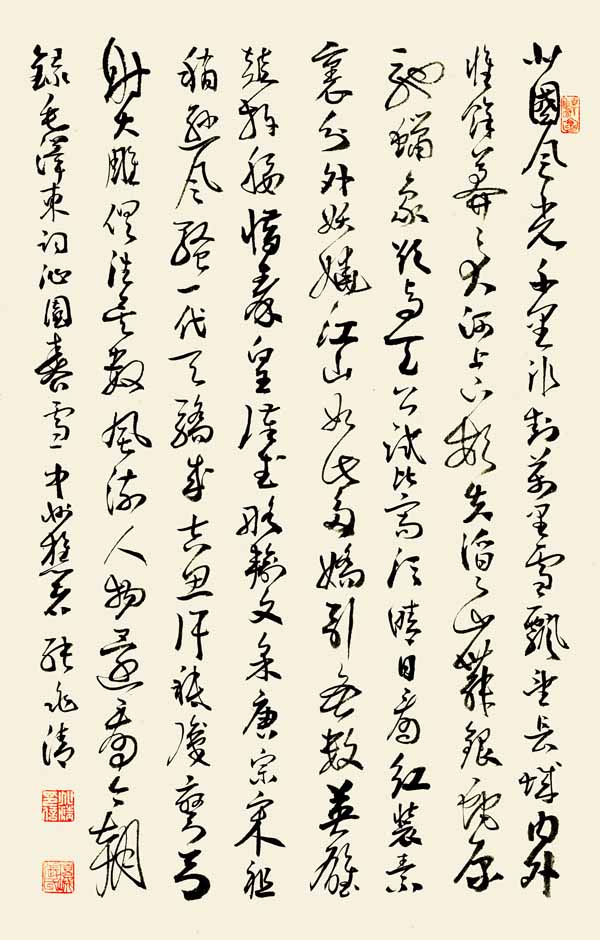 北國風光千里冰封萬里雪飄望長城內外
惟餘莽々大河上下頓失滔々山舞銀蛇原
馳蠟象欲與天公試比高須晴日看紅裝素
裹分外妖嬈江山如此多嬌引無數英雄
競折腰惜秦皇漢武略輸文采唐宗宋祖
稍遜風騷一代天驕成吉思汗祇識彎弓
射大雕俱往矣數風流人物還看今朝
錄毛澤東詞沁園春雪中州張兆清